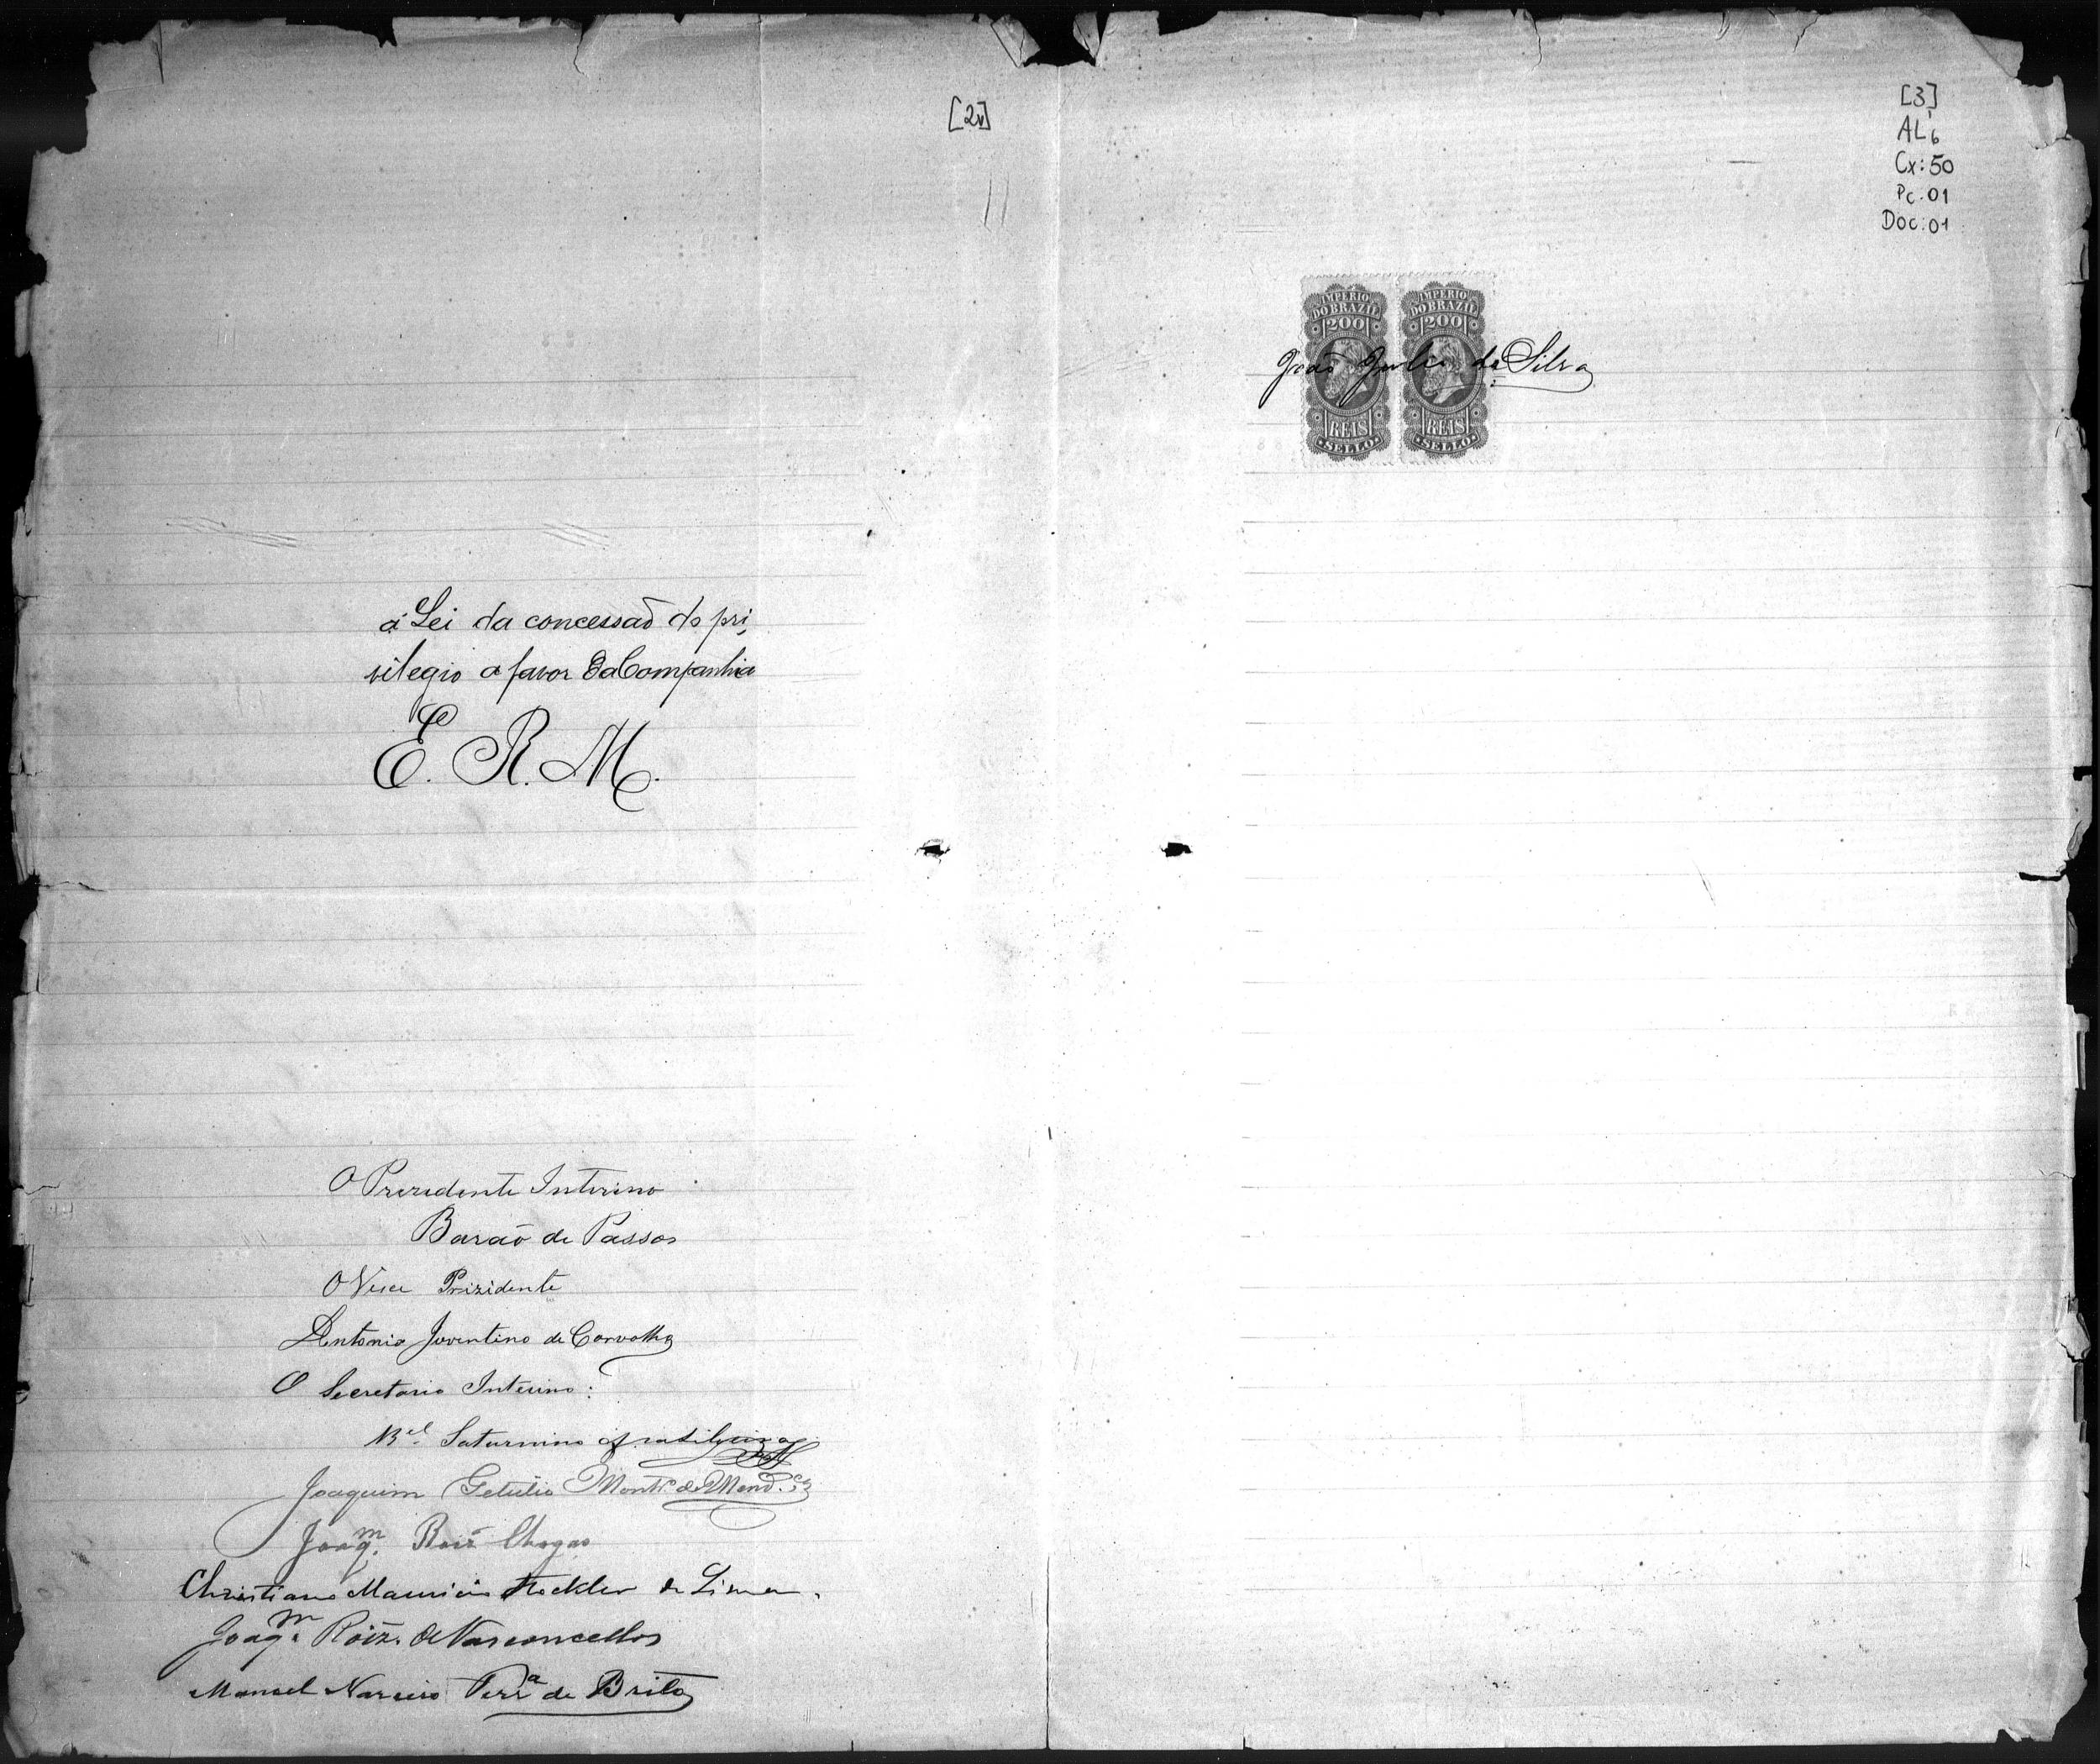 [2v]
á Lei da concessaõ do pri,
vilegio a favor da Companhia
E. R. M.
O Prezidente Interino
Barão de Passos
O Vice Prizidente
Antonio Juventino de Carvalho
O Secretario Interino:
B.el Saturnino
Joaquim Getulio Montr.o de Mend.ça
Joaq.m Roiz Chagas
Christiano Mauricio Stockler de Lima.
Joaq.m Roiz. de Vasconcellos
Manoel Narciso Ferr.a de Brito
[3]
AL6
Cx: 50
Pc. 01
Doc: 01
IMPERIO IMPERIO
DO BRAZIL DO BRAZIL
200 200
João Julio da Silva
REIS REIS
SELLO SELLO